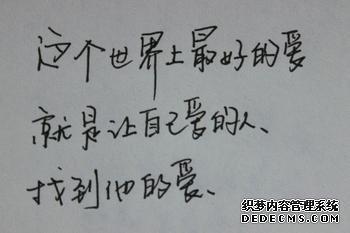 这个世界上最好的爱
就是让自己爱的人、
找到他的爱、
织梦内容管理系统
DEDECMS.COM